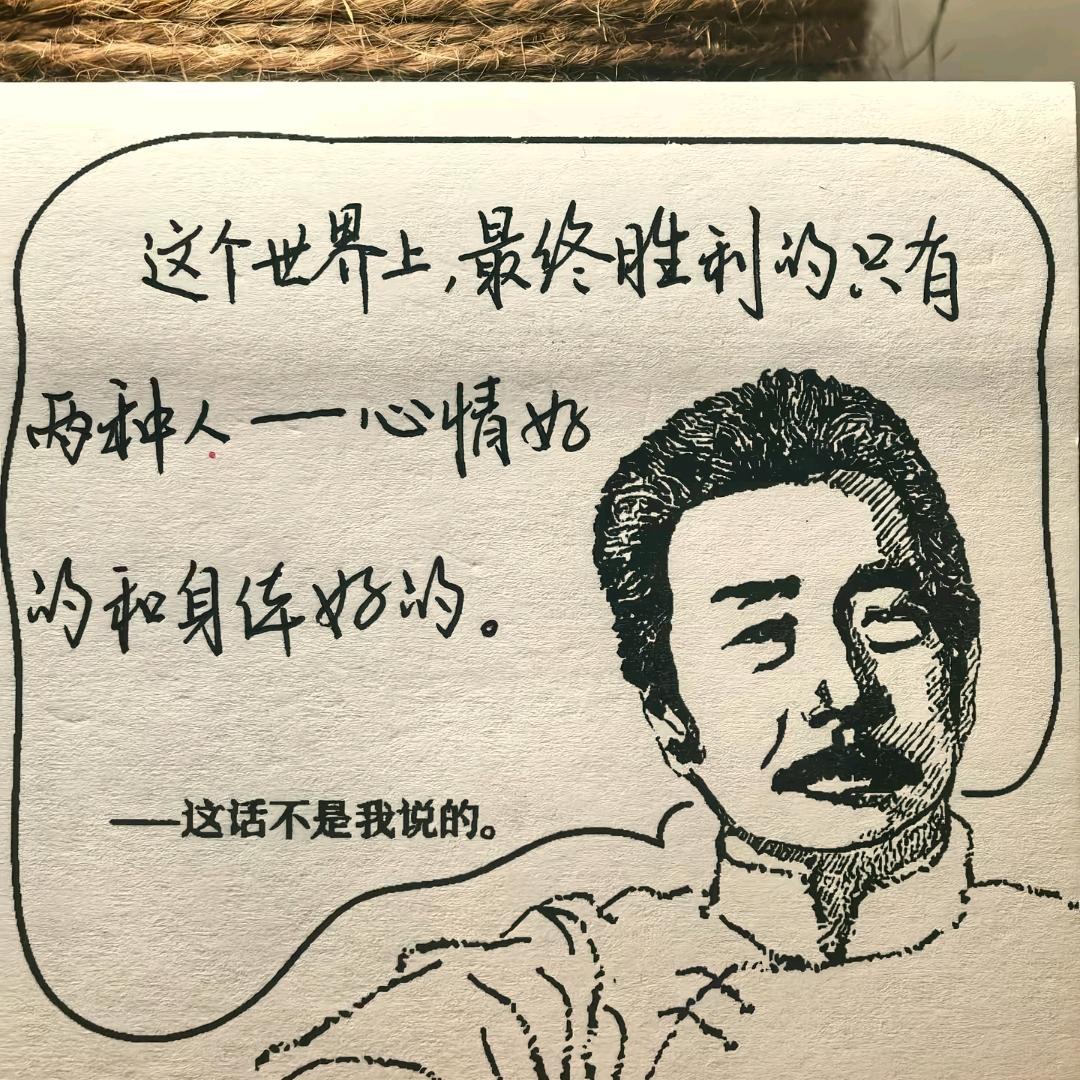 这个世界上,最终胜利的只有
两种人——心情好
的和身体好的。
——这话不是我说的。